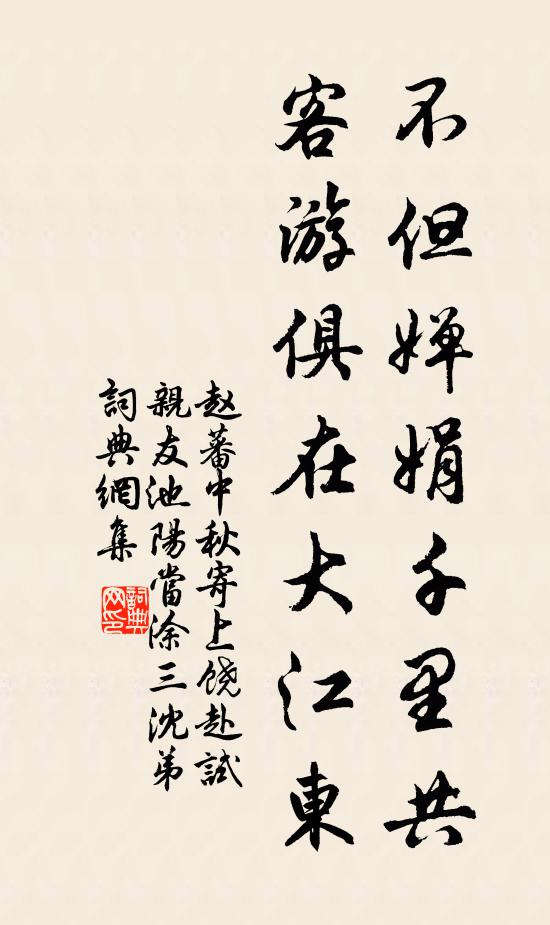 不但婵娟千里共
客游俱在大江東
赵蕃中秋寄上饶赴試
親友池陽當涂三沈弟
詞典網集
詞典网印